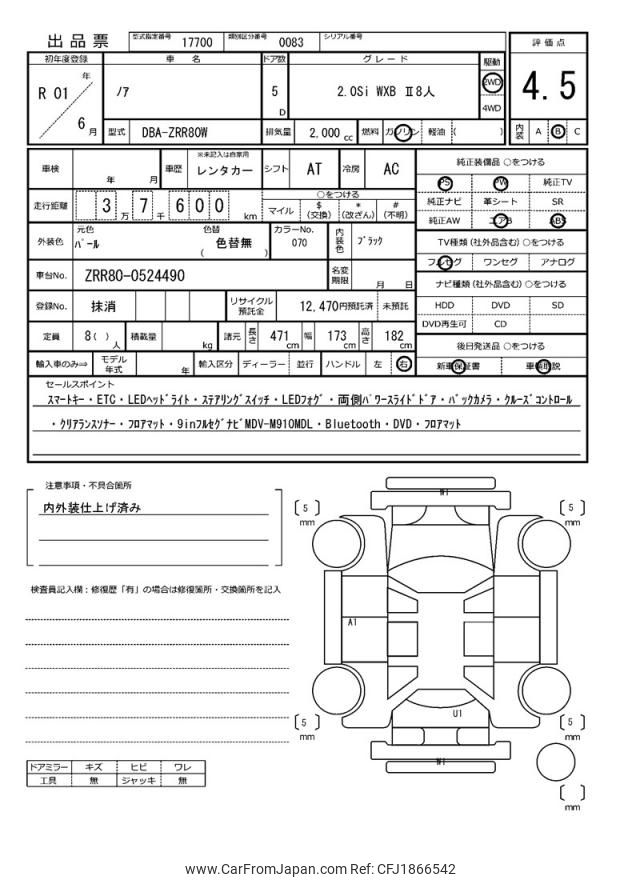 出品票 型式指定番号 17700 類別区分番号 0083 シリアル番号
初年度登録 車名 ドア数 グレード 駆動 評価点
R 01 年 6 月 ノア 5 D 2.0Si WXB Ⅱ8人 2WD 4WD 4.5
型式 DBA-ZRR80W 排気量 2,000 cc 燃料 ガソリン 軽油 ( ) 内装 A B C
車検 年 月 車歴 ※未記入は自家用 レンタカー シフト AT 冷房 AC
走行距離 3 万 7 千 6 0 0 km ○をつける マイル $ (交換) * (改ざん) # (不明)
外装色 元色 パール 色替 色替無 ( ) カラーNo. 070 内装色 ブラック
車台No. ZRR80-0524490 名変期限 月 日
登録No. 抹消 リサイクル預託金 12,470円預託済 未預託
定員 8( ) 人 積載量 kg 諸元 長さ 471 cm 幅 173 cm 高さ 182 cm
輸入車のみ⇒ モデル年式 年 輸入区分 ディーラー 並行 ハンドル 左 右
純正装備品 ○をつける
PS PW 純正TV
純正ナビ 革シート SR
純正AW エアB ABS
TV種類(社外品含む)○をつける
フルセグ ワンセグ アナログ
ナビ種類(社外品含む)○をつける
HDD DVD SD
DVD再生可 CD
後日発送品 ○をつける
新車保証書 車輌取説
セールスポイント
スマートキー・ETC・LEDヘッドライト・ステアリングスイッチ・LEDフォグ・両側パワースライドドア・バックカメラ・クルーズコントロール
・クリアランスソナー・フロアマット・9inフルセグナビMDV-M910MDL・Bluetooth・DVD・フロアマット
注意事項・不具合箇所
内外装仕上げ済み
検査員記入欄:修復歴「有」の場合は修復箇所・交換箇所を記入
ドアミラー キズ ヒビ ワレ
工具 無 ジャッキ 無
W1
5 mm
5 mm
A1
U1
5 mm
5 mm
W1
mm
www.CarFromJapan.com Ref: CFJ1866542